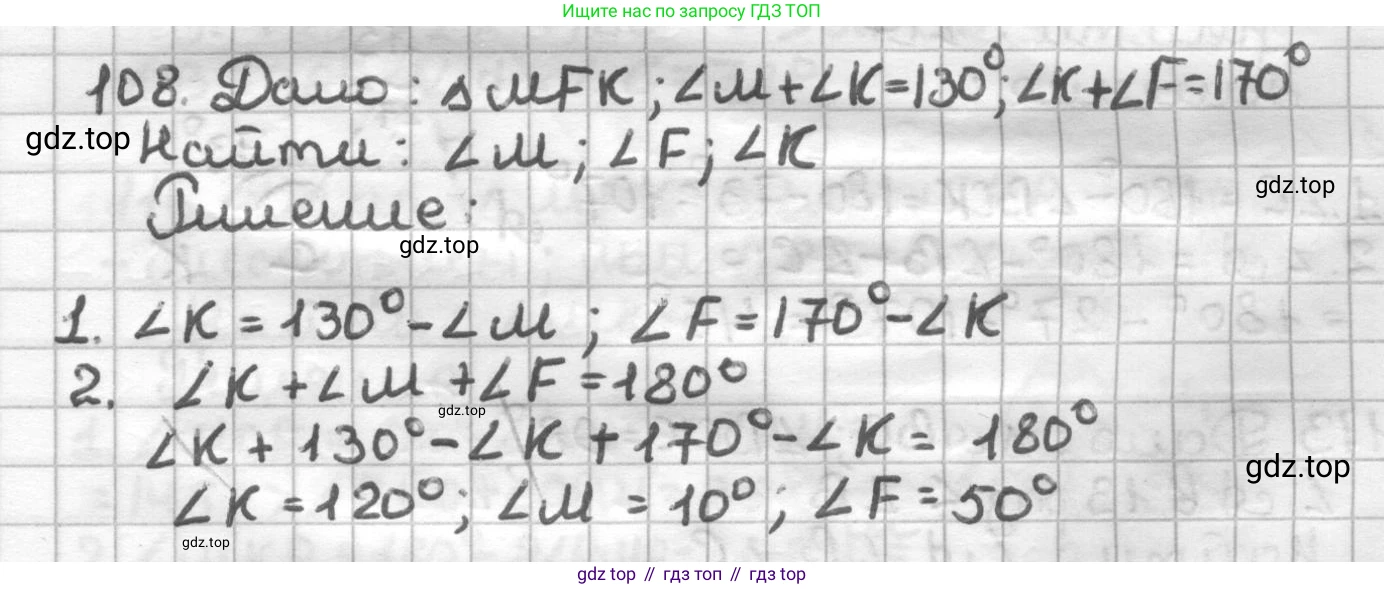 Ищите нас по запросу ГДЗ ТОП
108. Дано: Δ MFK; ∠M+∠K=130°; ∠K+∠F=170°
gdz.top
Найти: ∠M; ∠F; ∠K
gdz.top
Решение:
gdz.top
1. ∠K = 130° - ∠M ; ∠F = 170° - ∠K
2. ∠K + ∠M + ∠F = 180°
gdz.top
∠K + 130° - ∠K + 170° - ∠K = 180°
gdz.top
∠K = 120°; ∠M = 10°; ∠F = 50°
gdz.top
gdz top // гдз топ // гдз top